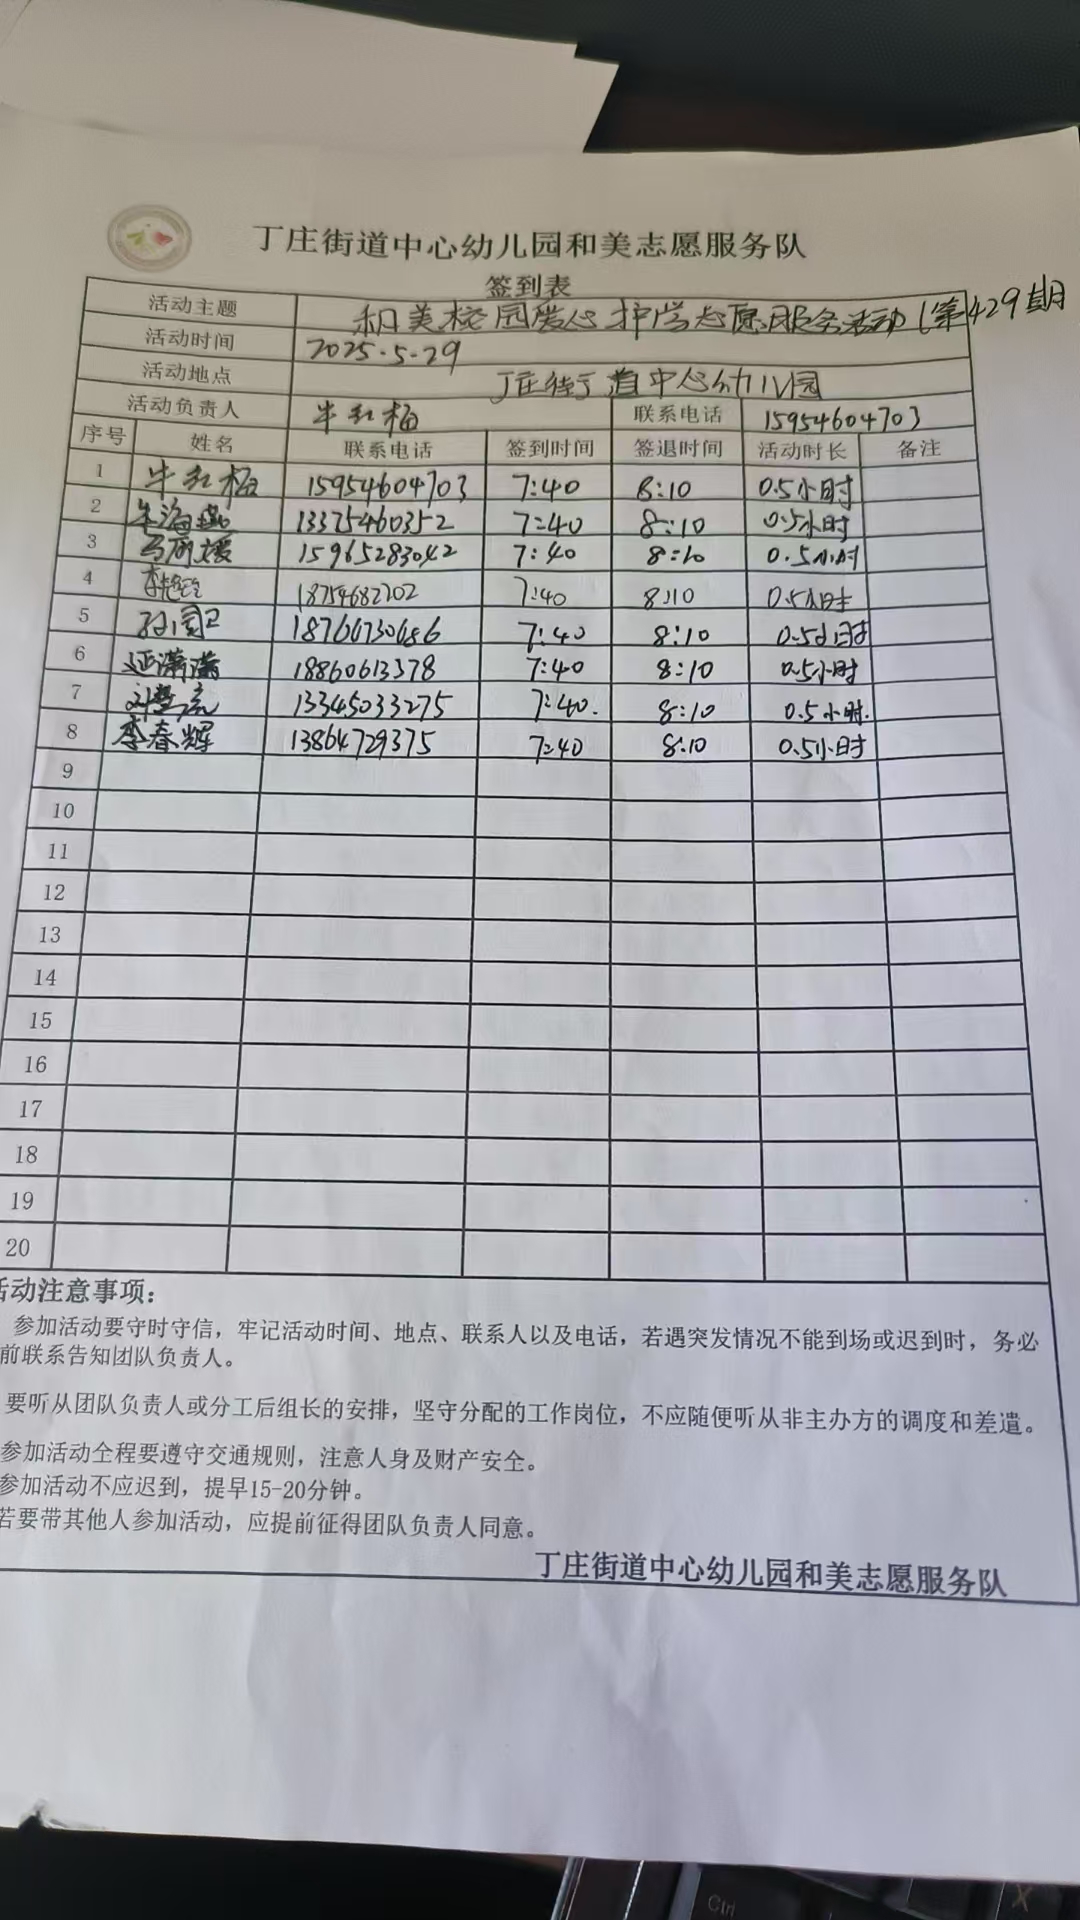 丁庄街道中心幼儿园和美志愿服务队
签到表
活动主题 和美校园爱心护学志愿服务活动(第429期
活动时间 2025.5.29
活动地点 丁庄街道中心幼儿园
活动负责人 牛红梅 联系电话 15954604703
序号 姓名 联系电话 签到时间 签退时间 活动时长 备注
1 牛红梅 15954604703 7:40 8:10 0.5小时
2 13375460352 7:40 8:10 0.5小时
3 15965283042 7:40 8:10 0.5小时
4 18754682702 7:40 8:10 0.5小时
5 孙国卫 18766730686 7:40 8:10 0.5小时
6 延潇潇 18860613378 7:40 8:10 0.5小时
7 13345033275 7:40. 8:10 0.5小时.
8 李春辉 13864729375 7:40 8:10 0.5小时
9
10
11
12
13
14
15
16
17
18
19
20
活动注意事项：
参加活动要守时守信，牢记活动时间、地点、联系人以及电话，若遇突发情况不能到场或迟到时，务必
前联系告知团队负责人。
要听从团队负责人或分工后组长的安排，坚守分配的工作岗位，不应随便听从非主办方的调度和差遣。
参加活动全程要遵守交通规则，注意人身及财产安全。
参加活动不应迟到，提早15-20分钟。
若要带其他人参加活动，应提前征得团队负责人同意。
丁庄街道中心幼儿园和美志愿服务队
Ctrl
X